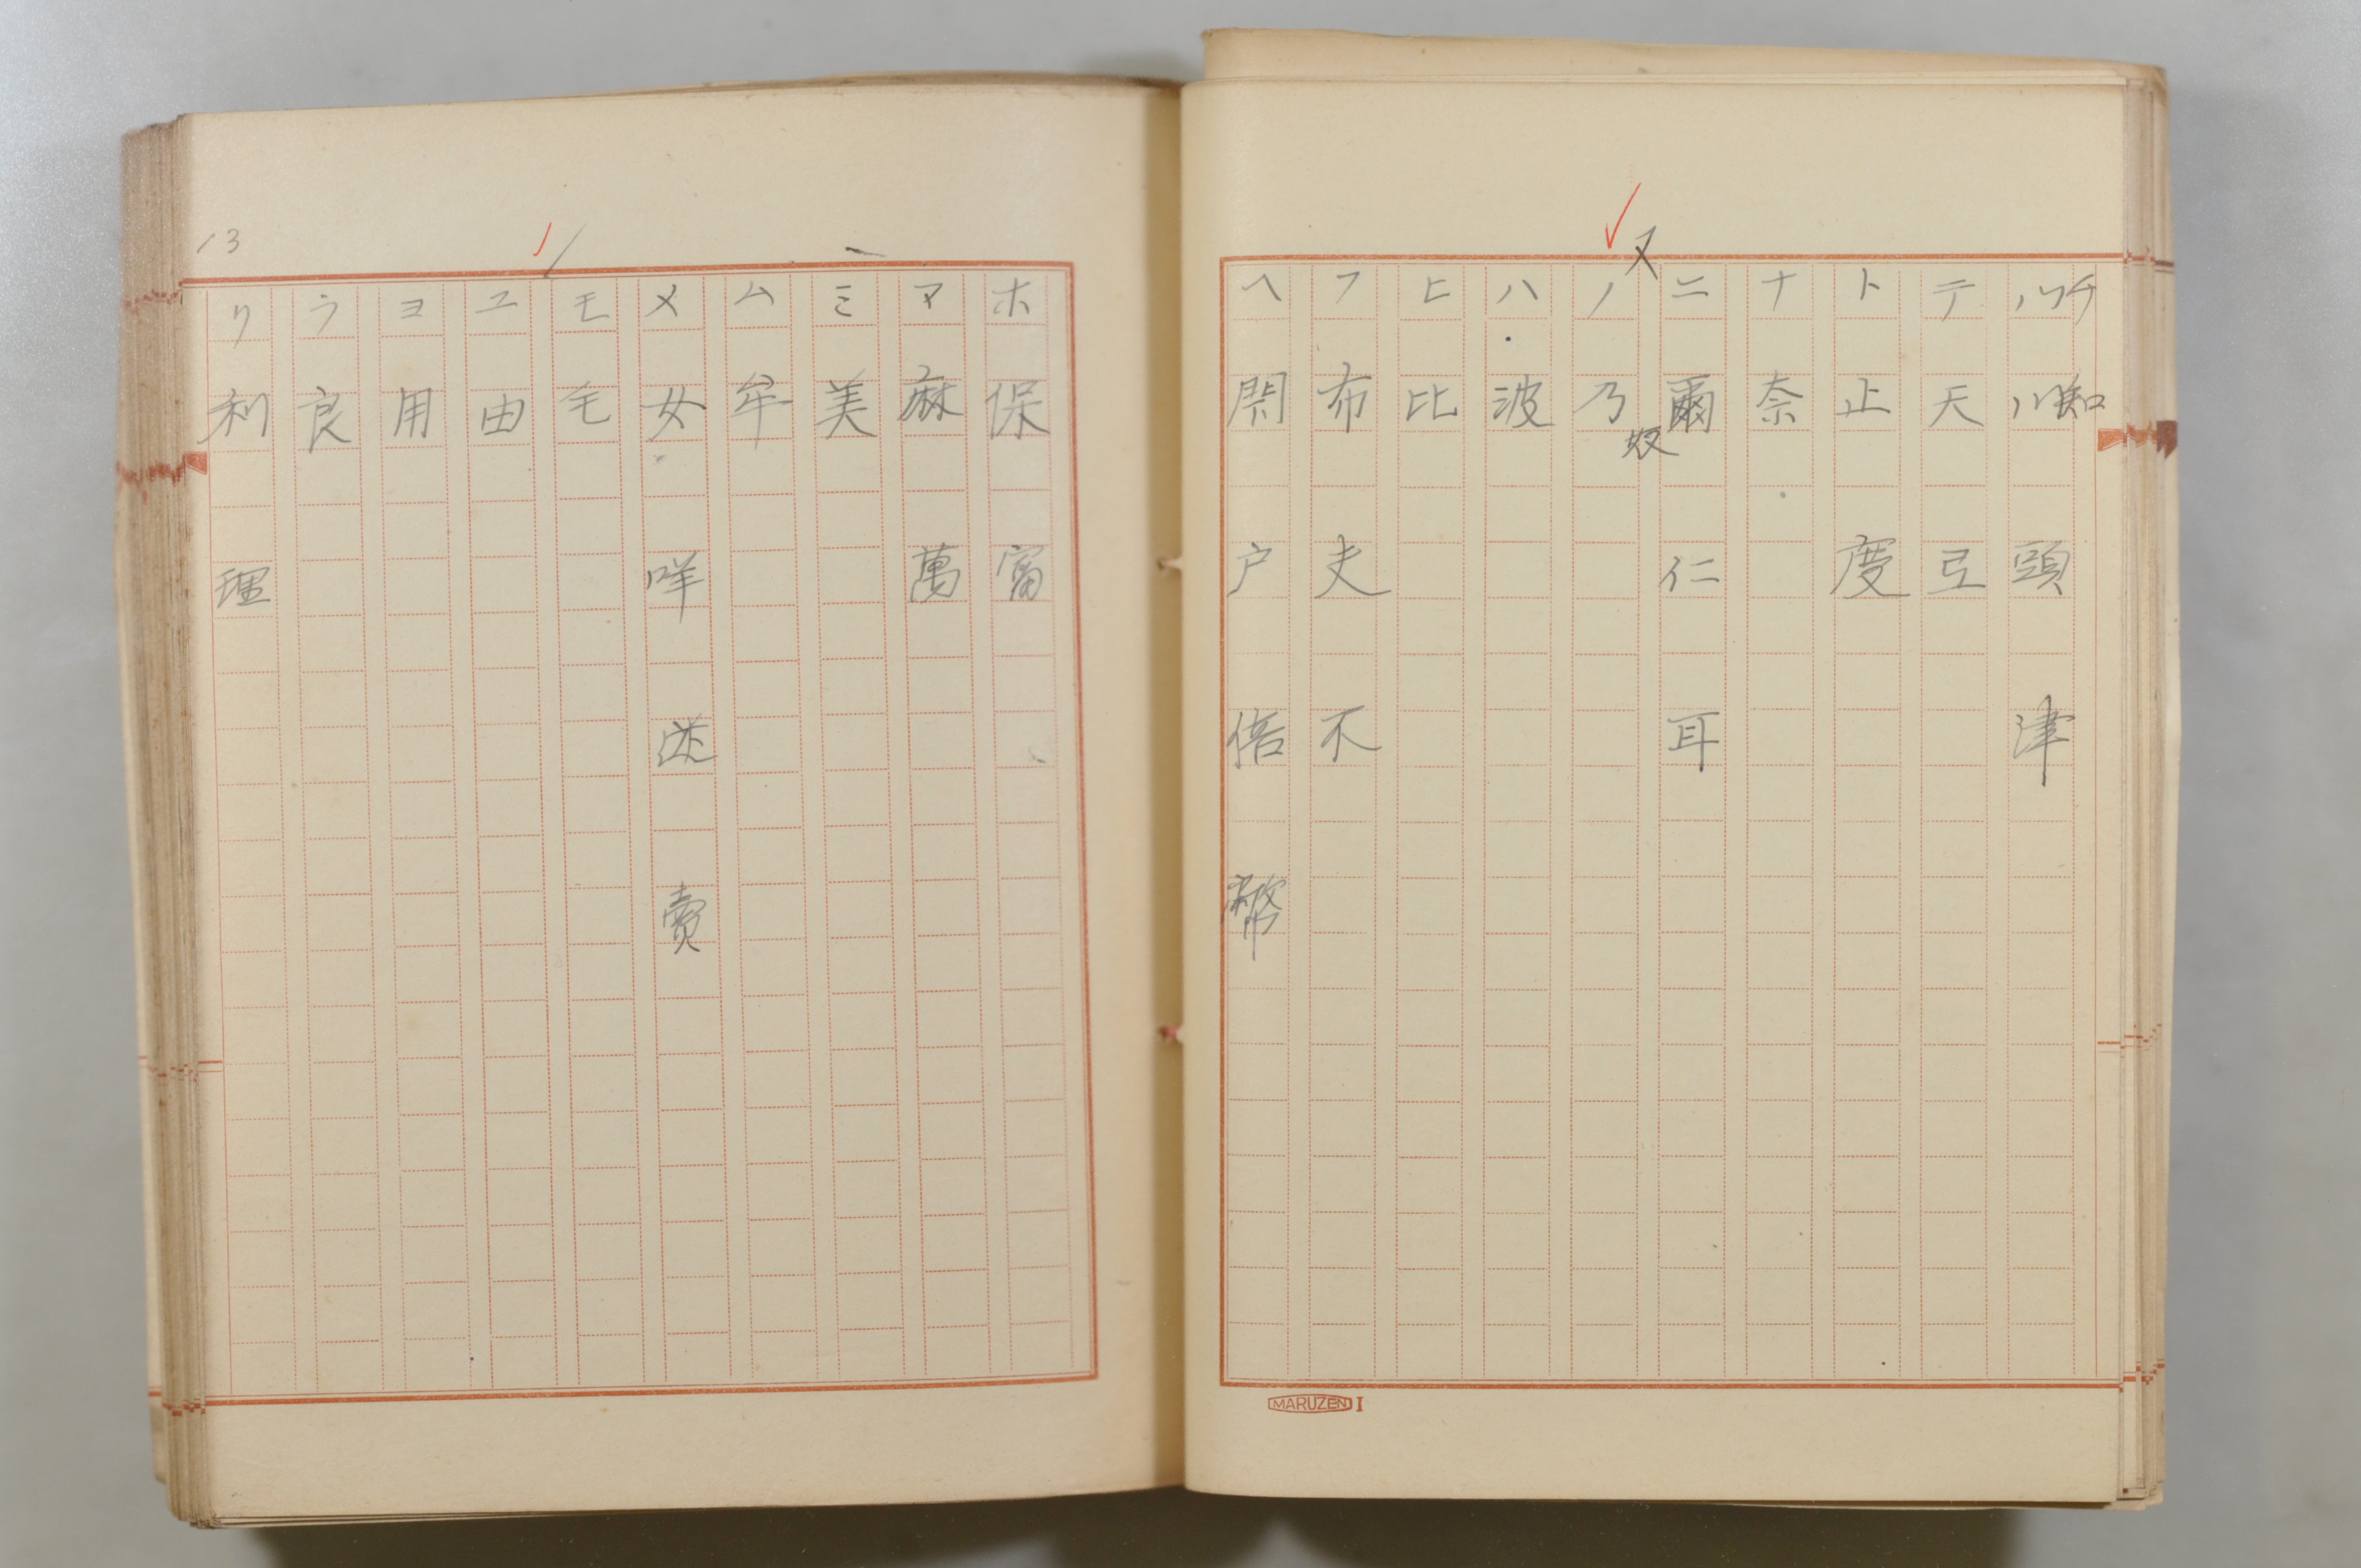 チ 知
ツ 川 頭 津
テ 天 弖
ト 止 度
ナ 奈
ニ 爾 仁 耳
ヌ 奴
ノ 乃
ハ 波
ヒ 比
フ 布 夫 不
ヘ 閇 戸 倍 幣
MARUZEN I
ホ 保 富
マ 麻 萬
ミ 美
ム 牟
メ 女 咩 迷 賣
モ 毛
ユ 由
ヨ 用
ラ 良
リ 利 理
13